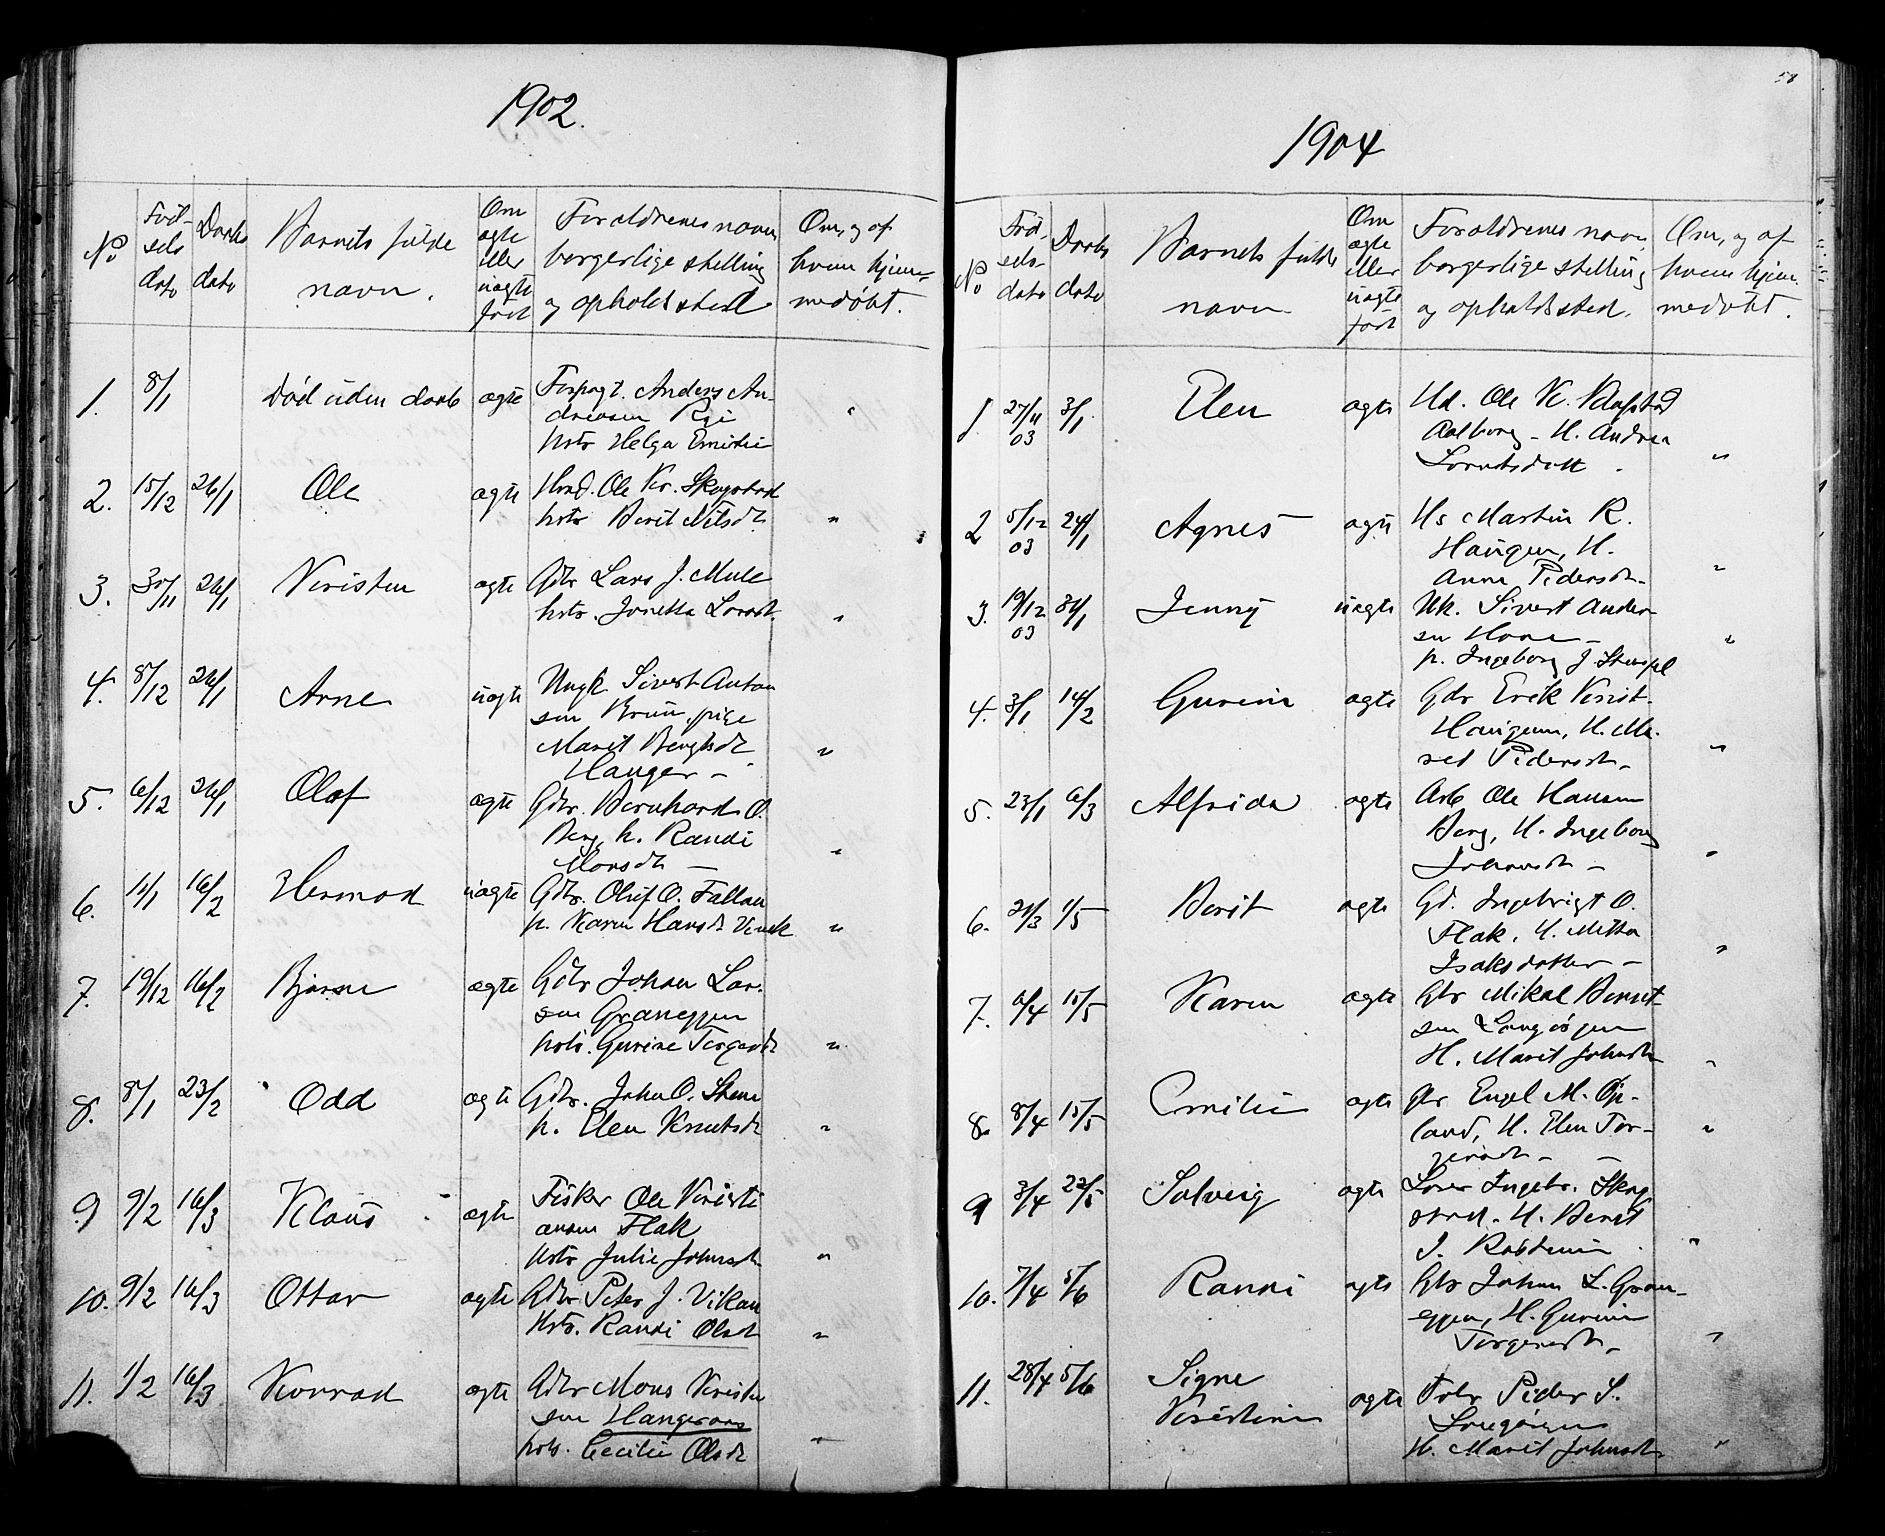 1902.
No
Fød-
sels
dato
Daabs
dato
Barnets fulde
navn.
Om
ægte
eller
uægte
født
Forældrenes navn,
borgerlige stilling
og opholdssted
Om, og af
hvem hjem-
medøbt.
1. 8/1 Død uden daab ægte Forpagt. Anders An-
dreasen Rye
hstr Helga Emilie "
2. 15/12 26/1 Ole ægte Hmd. Ole Kr. Skogstad
hstr Berit Nilsdt. "
3. 30/11 26/1 Kristen ægte Gdbr Lars J. Mule
hstr. Jonetta Larsdt. "
4. 8/12 26/1 Arne uægte Ungk. Sivert Anton
sen Bruu, pige
Marit Bengtsdt
Hanger - "
5. 6/12 26/1 Olaf ægte Gdbr. Bernhard O.
Berg, h. Randi
Monsdt - "
6. 11/1 16/2 Hermod uægte Gdbr. Oluf O. Fallan
p. Karen Hansdt "
7. 19/12 16/2 Bjarne ægte Gdbr Johan Lar-
sen Graneggen
hstr. Gurine Torgersdt "
8. 8/1 23/2 Odd ægte Gdbr. John O.
h. Elen Knutsdt "
9. 9/2 16/3 Klaus ægte Fisker Ole Kristi
ansen Flak
hstr Julie Johnsdt "
10. 9/2 16/3 Ottar ægte Gdbr Peter J. Vikan
hstr. Randi Olsdt "
11. 1/2 16/3 Konrad ægte Gdbr Mons Kristen
sen Hangeraas
hstr. Cecilie Olsdt "
58
1904
No
Fød-
sels-
dato
Daabs
dato
Barnets fulde
navn.
Om
ægte
eller
uægte
født
Forældrenes navn,
borgerlige stilling
og opholdssted.
Om, og af
hvem hjem-
medøbt.
1 27/11 03 3/1 Elen ægte Hd. Ole K. Klefstad
Aalberg - H. Andrea
Lorntsdatt. "
2 5/12 03 24/1 Agnes ægte Hs Martin R.
Haugen, H.
Anna Pedersdt. "
3. 19/12 03 31/1 Jenny uægte Uk. Sivert Ander-
sen Hove -
p. Ingeborg J. "
4. 3/1 14/2 Gurine ægte Gdr Erik Krist.
Haugum, H. Ma-
ret Pedersdt. "
5. 23/1 6/3 Alfrida ægte Arb Ole Hansen
Berg, H. Ingeborg
Johansdt - "
6. 21/3 1/5 Berit ægte Gd. Ingebrigt O.
Flak, H. Mitta
Isaksdatter - "
7. 6/4 15/5 Karen ægte Gbr Mikal Bernt-
sen Langørgen
H. Marit Johnsdt "
8. 8/4 15/5 Emilie ægte Gbr Engel M. Øp-
land, H. Elen Tor-
gersdt - "
9 3/4 22/5 Solveig ægte Lærer Ingebr. Skog
stad. H. Berit
J. "
10. 7/4 5/6 Randi ægte Gbr Johan L. Gran-
eggen, H. Gurine
Torgersdt. "
11. 28/4 5/6 Signe
Kristine ægte Peder S.
Langørgen
H. Marit Johnsdt "